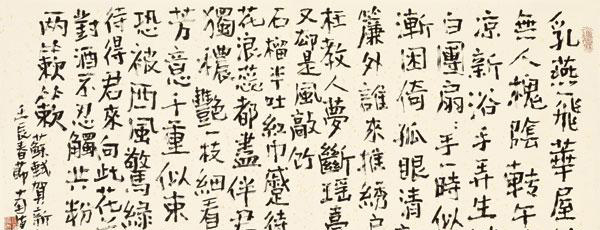 乳燕飛華屋
無人槐陰轉午
涼新浴手弄生
白團扇手一時似
漸困倚孤眠清
簾外誰來推繡戶
枉教人夢斷瑤臺
又卻是風敲竹
石榴半吐紅巾蹙待
花浪蕊都盡伴君
獨穠豔一枝細看
芳意千重似束
恐被西風驚綠
待得君來向此花
對酒不忍觸共粉
兩簌簌
蘇軾賀新
壬辰春節